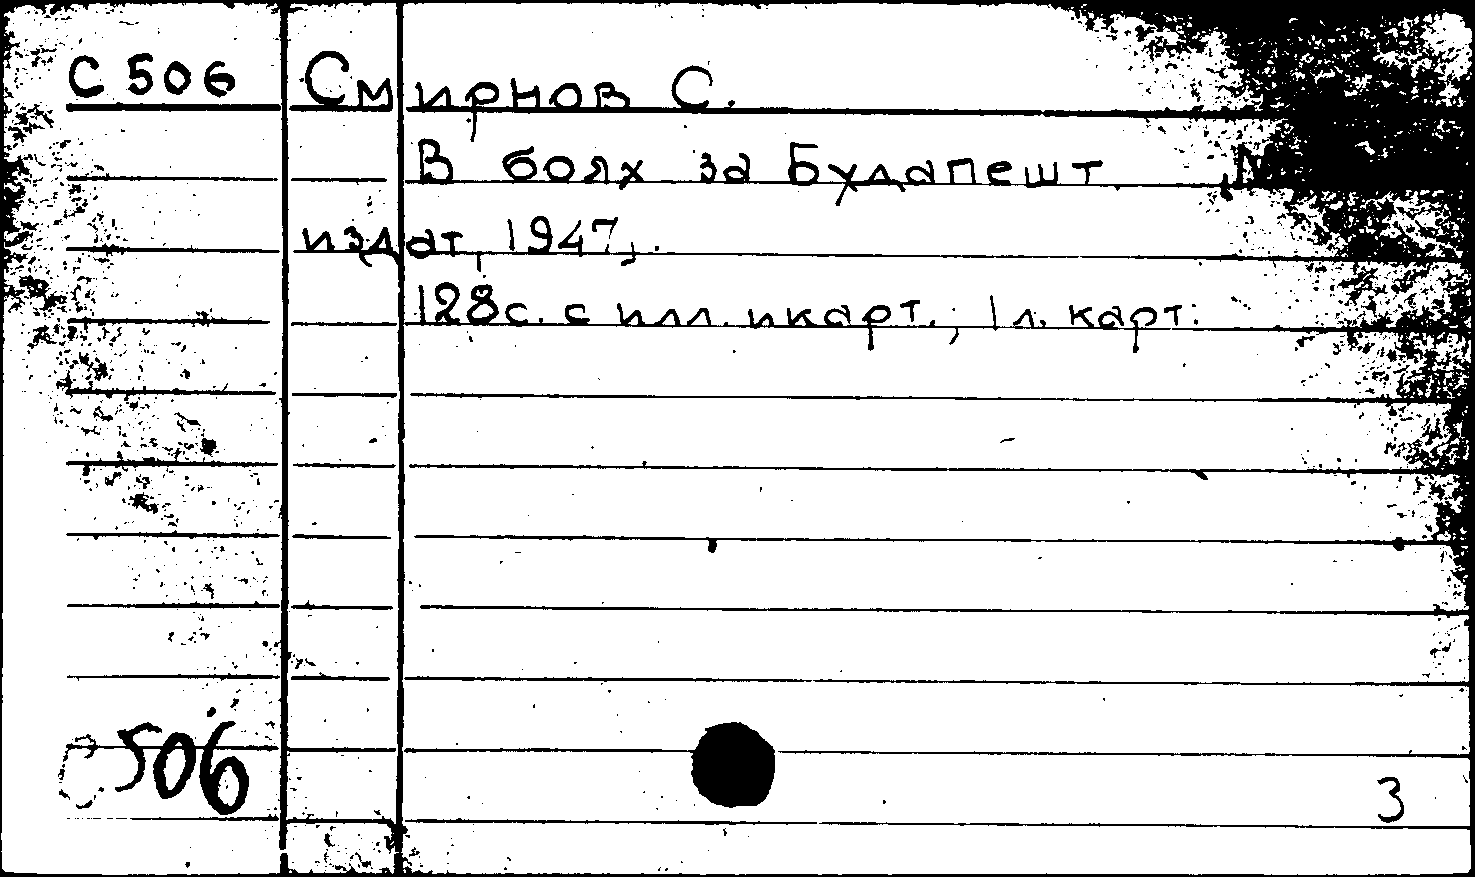 С 506 Смирнов С.
В боях за Будапешт, М
издат, 1947,.
128с. с илл. и карт.; 1 л. карт.
С506
3